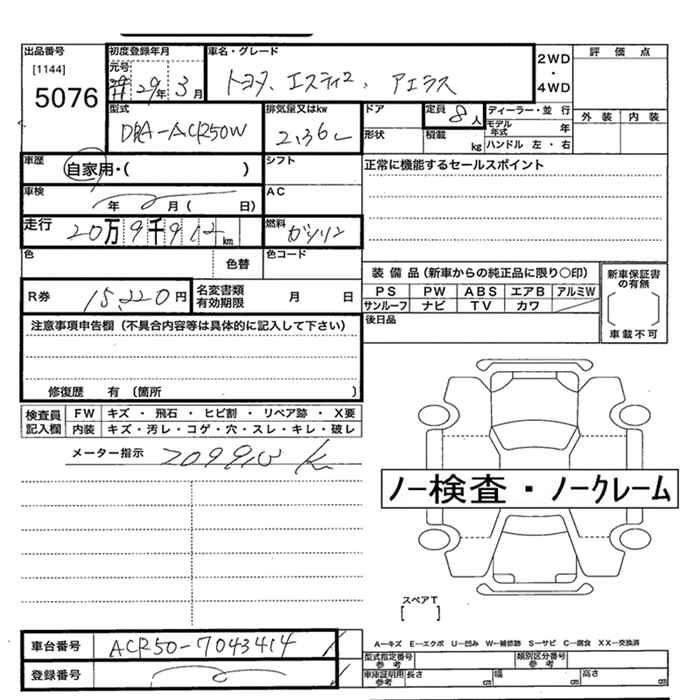 出品番号
[1144]
5076
初度登録年月
元号
29年 3月
車名・グレード
トヨタ、エスティマ、アエラス
2WD
・
4WD
評価点
外装 内装
型式
DBA-ACR50W
排気量又はkw
2,36L
ドア
形状
定員 8人
積載 kg
ディーラー・並行
モデル年式 年
ハンドル 左・右
車歴
自家用・( )
シフト
正常に機能するセールスポイント
車検
年 月( 日)
AC
走行
20万9千912km
燃料
ガソリン
色
色替
色コード
R券 15,220円
名変書類
有効期限
月 日
装備品(新車からの純正品に限り○印)
PS PW ABS エアB アルミW
サンルーフ ナビ TV カワ
新車保証書
の有無
車載不可
後日品
注意事項申告欄(不具合内容等は具体的に記入して下さい)
修復歴 有〔箇所 〕
検査員
記入欄
FW キズ・飛石・ヒビ割・リペア跡・X要
内装 キズ・汚レ・コゲ・穴・スレ・キレ・破レ
メーター指示
ノー検査・ノークレーム
スペアT
[ ]
A−キズ E−エクボ U−凹み W−補修跡 S−サビ C−腐食 XX−交換済
車台番号 ACR50-7043414
登録番号
型式指定番号
参考
類別区分番号
参考
車庫証明用
参考
長さ cm 幅 cm 高さ cm